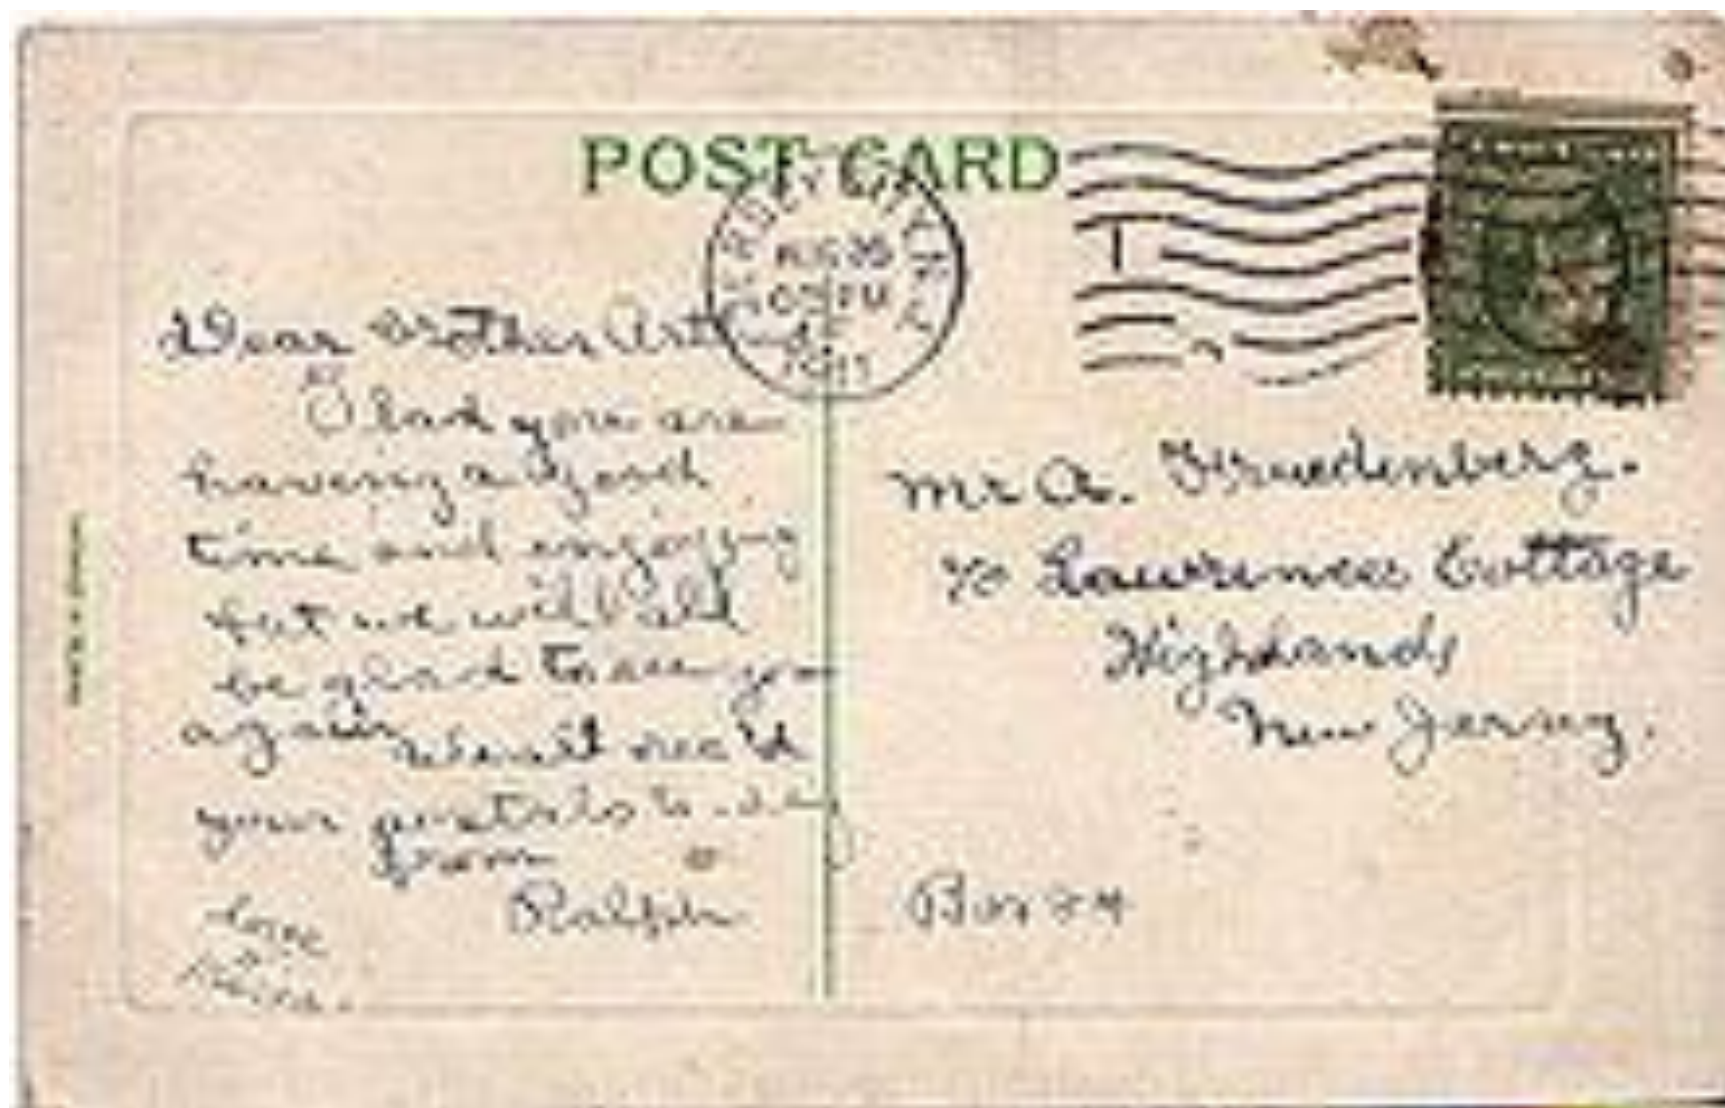 POST CARD
JERSEY CITY N.J.
AUG 26
PM
1911
Dear Brother Arthur
Glad you are
having a good
time and enjoying
but we will all
be glad to see you
again
your postals
from
Ralph
Love
Mr A. Fruedenberg.
c/o Lawrences Cottage
Highlands
New Jersey.
Box 24